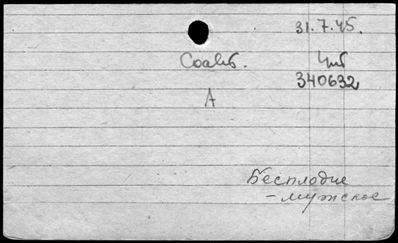 31.7.45.
Чит
340632
А
Бесплодие
- мужское